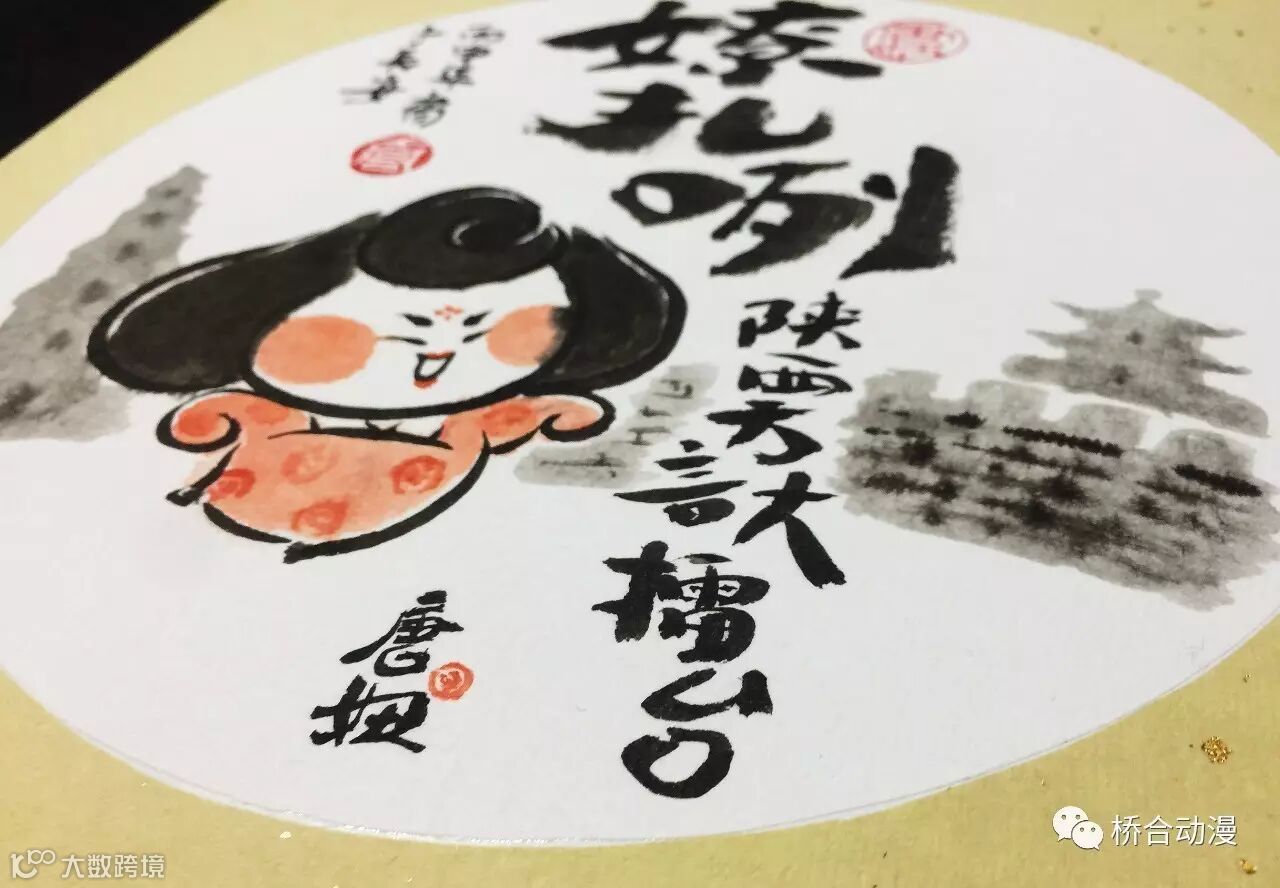 嫽扎咧
陕西方言大擂台
唐妞
桥合动漫
大数跨境